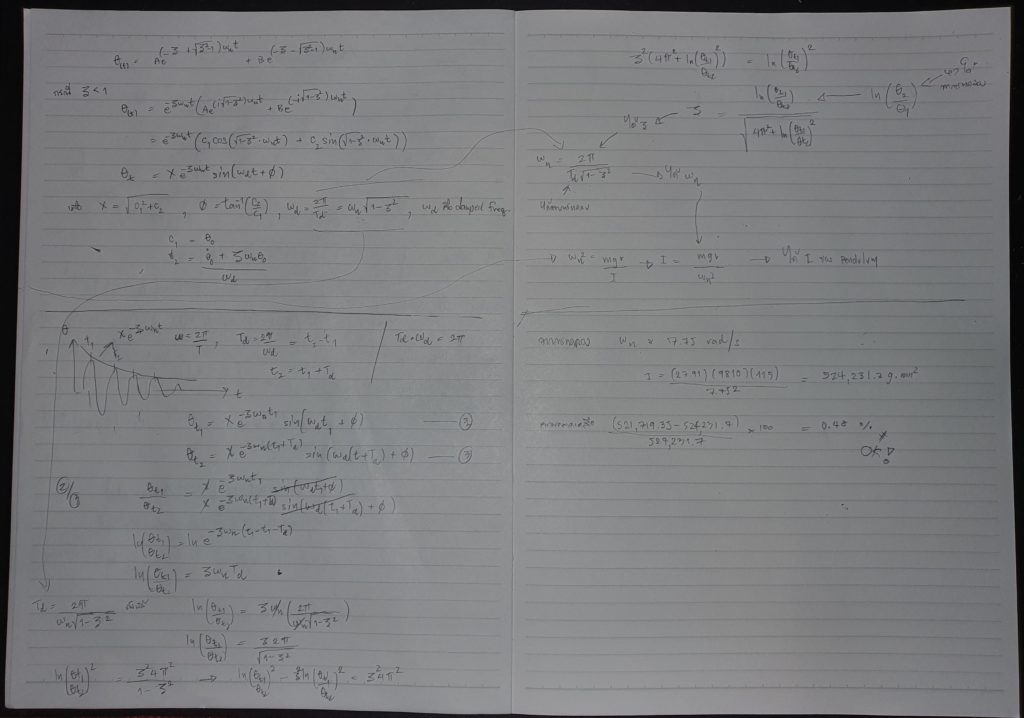 θ(t) = Ae^(-ζ + √(ζ²-1))ωₙt + Be^(-ζ - √(ζ²-1))ωₙt
กรณี ζ < 1
θ(t) = e^-ζωₙt (Ae^(i√(1-ζ²))ωₙt + Be^(-i√(1-ζ²))ωₙt)
= e^-ζωₙt (C₁cos(√(1-ζ²)·ωₙt) + C₂sin(√(1-ζ²)·ωₙt))
θt = Xe^-ζωₙt sin(ωdt + ∅)
X = √(C₁²+C₂) , ∅ = tan⁻¹(C₂/C₁) , ωd = 2π/Td = ωₙ√(1-ζ²) , ωd คือ damped freq.
C₁ = θ₀
= (θ̇₀ + ζωₙθ₀)/ωd
θ
Xe^-ζωₙt
t₁
t₂
t
ω = 2π/T , Td = 2π/ωd = t₂-t₁
Td·ωd = 2π
t₂ = t₁ + Td
θt₁ = Xe^-ζωₙt₁ sin(ωdt₁ + ∅) — ②
θt₂ = Xe^-ζωₙ(t₁+Td) sin(ωd(t+Td) + ∅) — ③
θt₁/θt₂ = Xe^-ζωₙt₁ sin(ωdt₁+∅) / Xe^-ζωₙ(t₁+Td) sin(ωd(t₁+Td) + ∅)
ln(θt₁/θt₂) = ln e^-ζωₙ(t₁-t₁-Td)
ln(θt₁/θt₂) = ζωₙTd
Td = 2π/(ωₙ√(1-ζ²)) ln(θt₁/θt₂) = ζωₙ(2π/(ωₙ√(1-ζ²)))
ln(θt₁/θt₂) = ζ2π/√(1-ζ²)
ln(θt₁/θt₂)² = ζ²4π²/(1-ζ²) → ln(θt₁/θt₂)² - ζ²ln(θt₁/θt₂)² = ζ²4π²
ζ²(4π² + ln(θt₁/θt₂)²) = ln(θt₁/θt₂)²
ζ = ln(θt₁/θt₂)/√(4π² + ln(θt₁/θt₂)²) ← ln(θ₂/θ₁)
ωₙ = 2π/(Td√(1-ζ²))
ωₙ² = mgr/I → I = mgr/ωₙ² → I ของ pendulum
จากการทดลอง ωₙ ≈ 7.75 rad/s
I = (2791)(9810)(115)/7.75² = 524,231.7 g·mm²
(521,719.35 - 524,231.7)/524,231.7 × 100 = 0.48 %